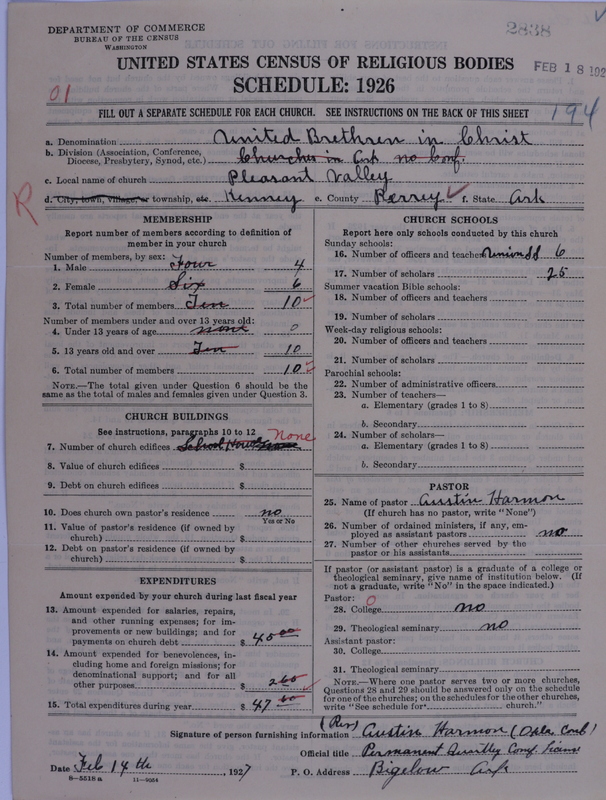 2838
DEPARTMENT OF COMMERCE
BUREAU OF THE CENSUS
WASHINGTON
UNITED STATES CENSUS OF RELIGIOUS BODIES
FEB 18 192
SCHEDULE: 1926
01
FILL OUT A SEPARATE SCHEDULE FOR EACH CHURCH. SEE INSTRUCTIONS ON THE BACK OF THIS SHEET
194
a. Denomination United Brethren in Christ
b. Division (Association, Conference, Diocese, Presbytery, Synod, etc.) Churches in Ark no Conf.
c. Local name of church Pleasant Valley
R
d. City, town, village, or township, etc. Kenney e. County Perrey f. State Ark
MEMBERSHIP
Report number of members according to definition of
member in your church
Number of members, by sex:
1. Male Four 4
2. Female Six 6
3. Total number of members Ten 10
Number of members under and over 13 years old:
4. Under 13 years of age none 0
5. 13 years old and over Ten 10
6. Total number of members 10
NOTE.—The total given under Question 6 should be the
same as the total of males and females given under Question 3.
CHURCH BUILDINGS
See instructions, paragraphs 10 to 12
None
7. Number of church edifices School House
8. Value of church edifices $
9. Debt on church edifices $
10. Does church own pastor's residence no
Yes or No
11. Value of pastor's residence (if owned by
church) $
12. Debt on pastor's residence (if owned by
church) $
EXPENDITURES
Amount expended by your church during last fiscal year
13. Amount expended for salaries, repairs,
and other running expenses; for im-
provements or new buildings; and for
payments on church debt $ 45 00
14. Amount expended for benevolences, in-
cluding home and foreign missions; for
denominational support; and for all
other purposes $ 2 60
15. Total expenditures during year $ 47 60
CHURCH SCHOOLS
Report here only schools conducted by this church
Sunday schools:
16. Number of officers and teachers Union SS 6
17. Number of scholars 25
Summer vacation Bible schools:
18. Number of officers and teachers
19. Number of scholars
Week-day religious schools:
20. Number of officers and teachers
21. Number of scholars
Parochial schools:
22. Number of administrative officers
23. Number of teachers—
a. Elementary (grades 1 to 8)
b. Secondary
24. Number of scholars—
a. Elementary (grades 1 to 8)
b. Secondary
PASTOR
25. Name of pastor Austin Harmon
(If church has no pastor, write "None")
26. Number of ordained ministers, if any, em-
ployed as assistant pastors no
27. Number of other churches served by the
pastor or his assistants
If pastor (or assistant pastor) is a graduate of a college or
theological seminary, give name of institution below. (If
not a graduate, write "No" in the space indicated.)
Pastor: 0
28. College no
29. Theological seminary no
Assistant pastor:
30. College
31. Theological seminary
NOTE.—Where one pastor serves two or more churches,
Questions 28 and 29 should be answered only on the schedule
for one of the churches; on the schedules for the other churches,
write "See schedule for church."
Signature of person furnishing information (Rev) Austin Harmon (Okla. Conf)
Official title Permanent Conf.
Date Feb 14th, 1927 P. O. Address Bigelow Ark
8—5518 a 11—9084